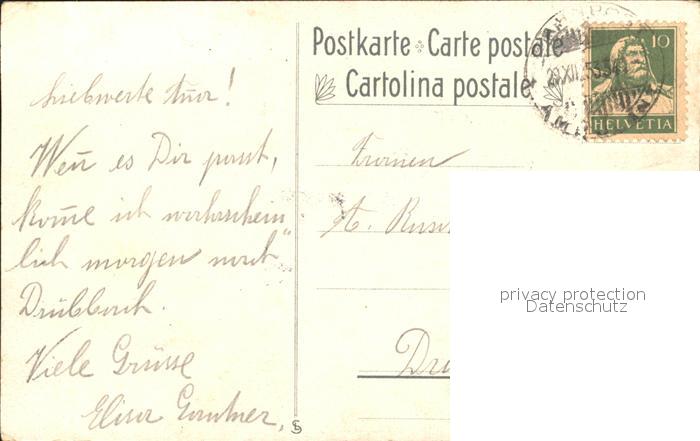 Postkarte Carte postale
Cartolina postale
10
HELVETIA
Liebwerte
Wen̄ es Dir passt,
kom̄e ich wahrschein
lich morgen nach
Trübbach.
Viele Grüsse
Elisa Gantner,
A.
privacy protection
Datenschutz